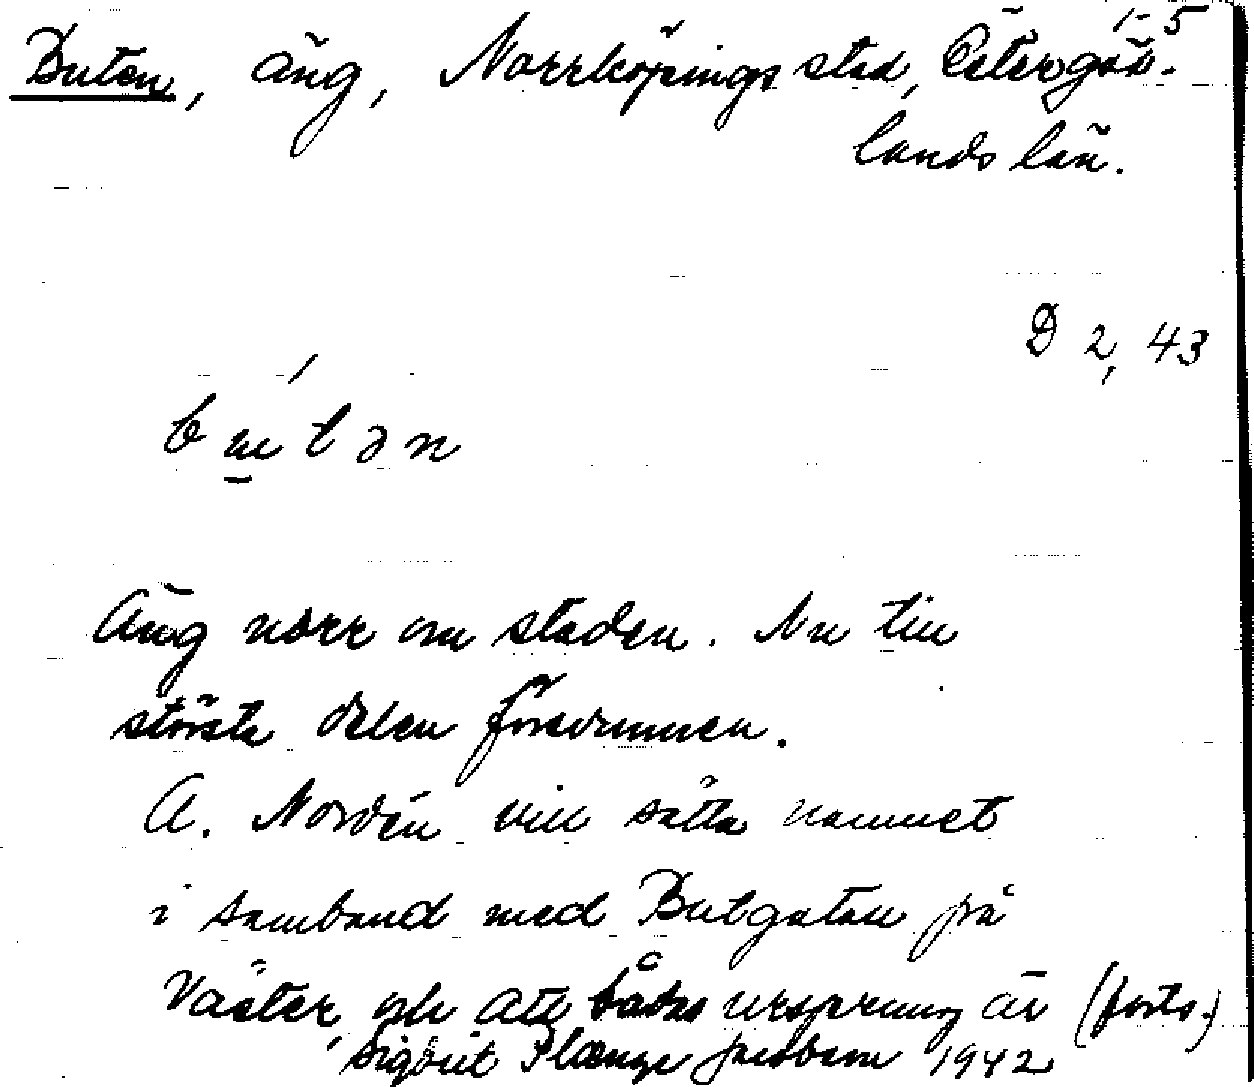 1-5
Buten, äng, Norrköpings stad, Östergöt-
lands län.
D 2, 43
butən
Äng norr om staden. Nu till
största delen försvunnen.
A. Nordén vill sätta namnet
i samband med Butgatan på
Väster, och att bådas ursprung är (forts.)
Sigurd Plænge Jacobson 1942